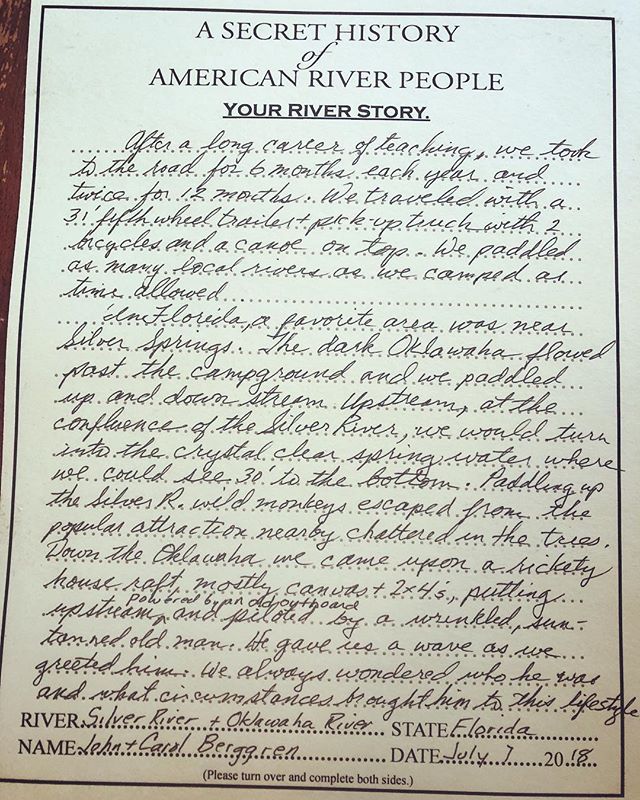 A SECRET HISTORY
of
AMERICAN RIVER PEOPLE
YOUR RIVER STORY.
After a long career of teaching, we took
to the road for 6 months each year and
twice for 12 months. We traveled with a
31' fifth wheel trailer + pick-up truck with 2
bicycles and a canoe on top. We paddled
as many local rivers as we camped as
time allowed
In Florida, a favorite area was near
Silver Springs. The dark Oklawaha flowed
past the campground and we paddled
up and down stream. Upstream, at the
confluence of the Silver River, we would turn
into the crystal clear spring water where
we could see 30' to the bottom. Paddling up
the Silver R. wild monkeys escaped from the
popular attraction nearby chattered in the trees.
Down the Oklawaha we came upon a rickety
house raft, mostly canvas + 2x4's, putting
powered by an old outboard
upstream, and piloted by a wrinkled, sun-
tanned old man. He gave us a wave as we
greeted him. We always wondered who he was
and what circumstances brought him to this lifestyle
RIVER Silver River + Oklawaha River STATE Florida
NAME John + Carol Berggren DATE July 7 2018
(Please turn over and complete both sides.)